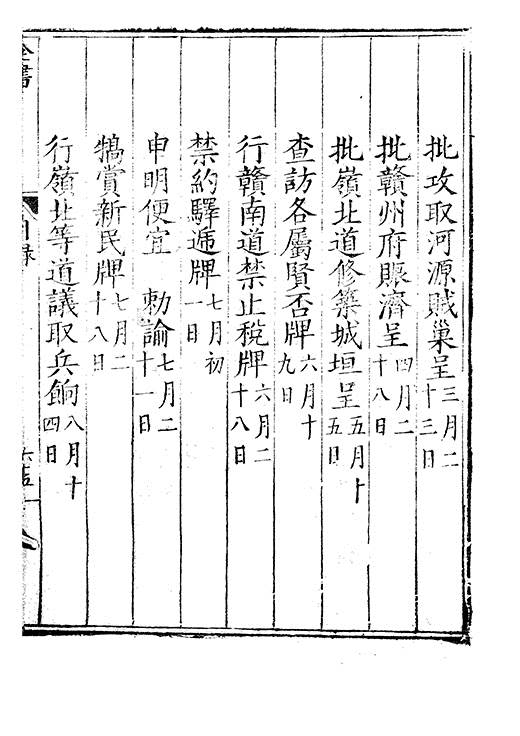 批攻取河源賊巢呈三月二十三日
批贛州府賑濟呈四月二十八日
批嶺北道修築城垣呈五月十五日
查訪各屬賢否牌六月十九日
行贛南道禁止稅牌六月二十八日
禁約驛遞牌七月初一日
申明便宜 勅諭七月二十一日
犒賞新民牌七月二十八日
行嶺北等道議取兵餉八月十四日
全書
目錄